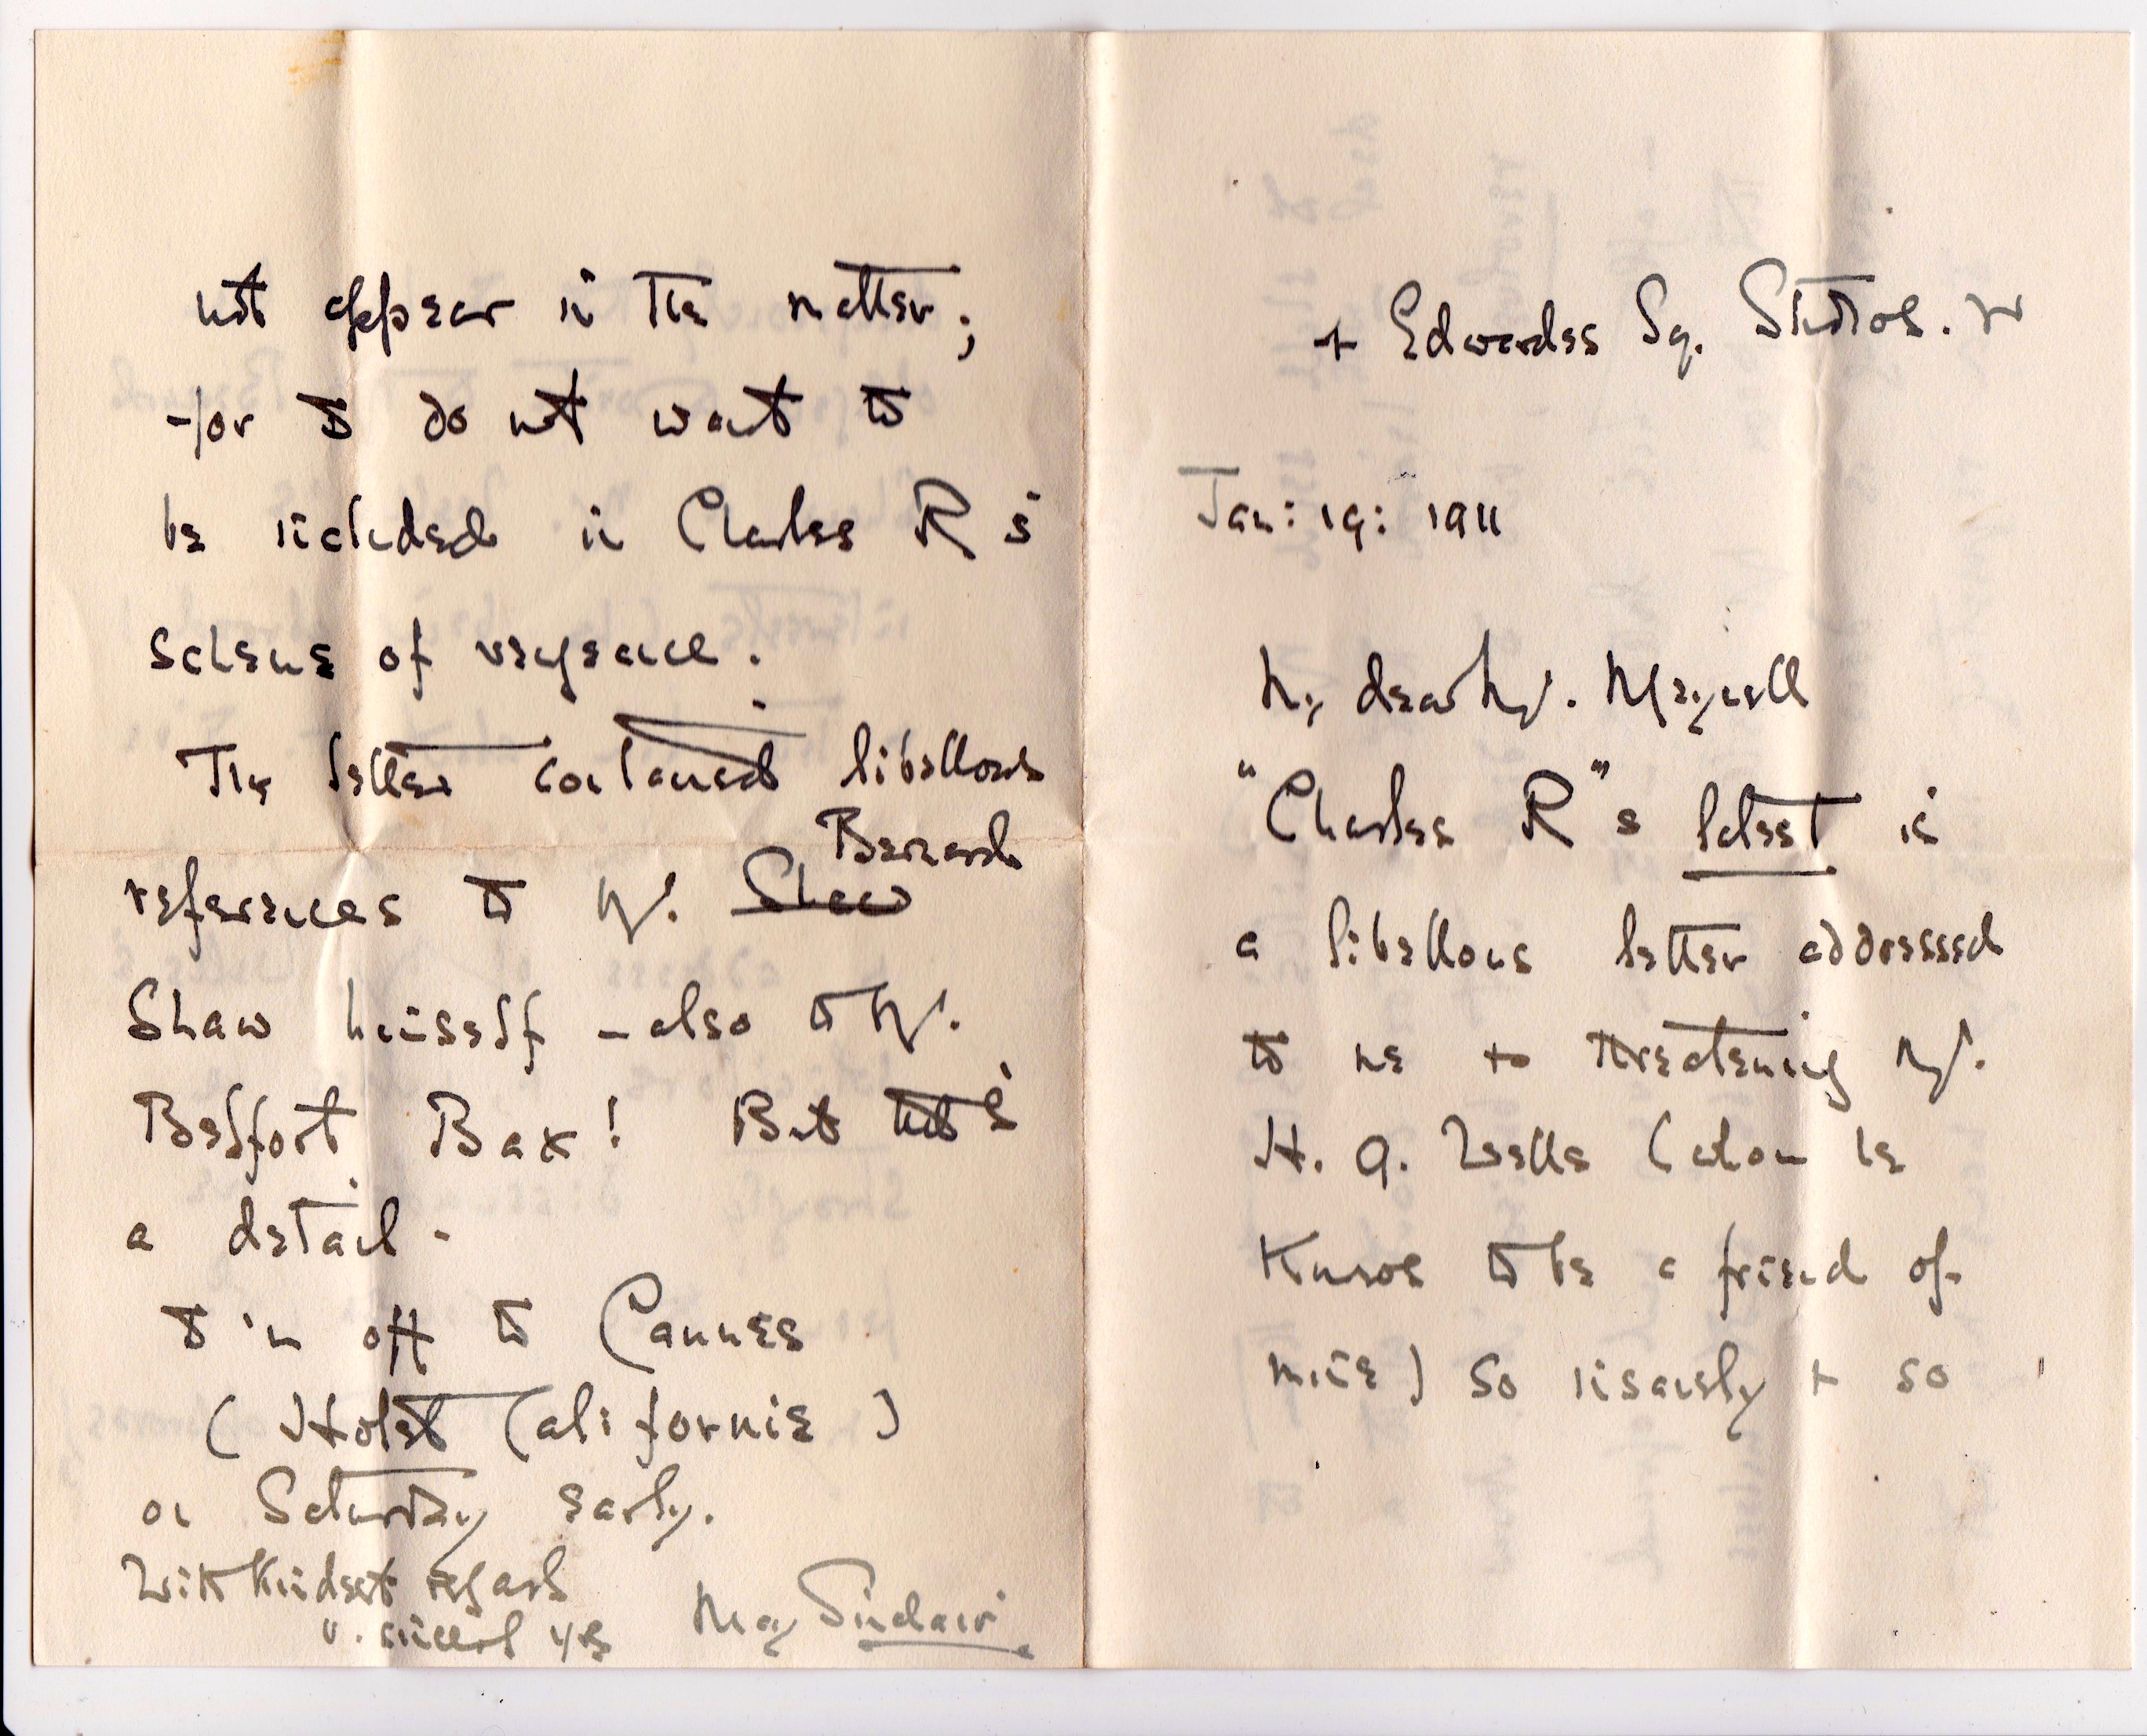 4 Edwardes Sq. Studios. W
Jan: 19: 1911
My dear Mr. Meynell
"Charles R"s latest is
a libellous letter addressed
to me & threatening Mr.
H. G. Wells (whom he
knows to be a friend of
mine) so insanely & so
not appear in the matter;
for I do not want to
be included in Charles R's
scheme of vengeance.
The letter contained libellous
references to Mr. Shaw Bernard
Shaw himself – also to Mr.
Belfort Bax! But that's
a detail.
I'm off to Cannes
(Hotel Californie)
on Saturday early.
With kindest regards
v. sincerely yrs
May Sinclair